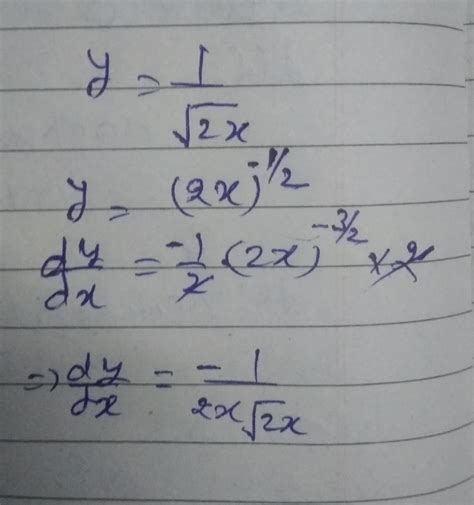 y = 1/√2x
y = (2x)^-1/2
dy/dx = -1/2 · (2x)^-3/2 × 2
⇒ dy/dx = -1/2x√2x